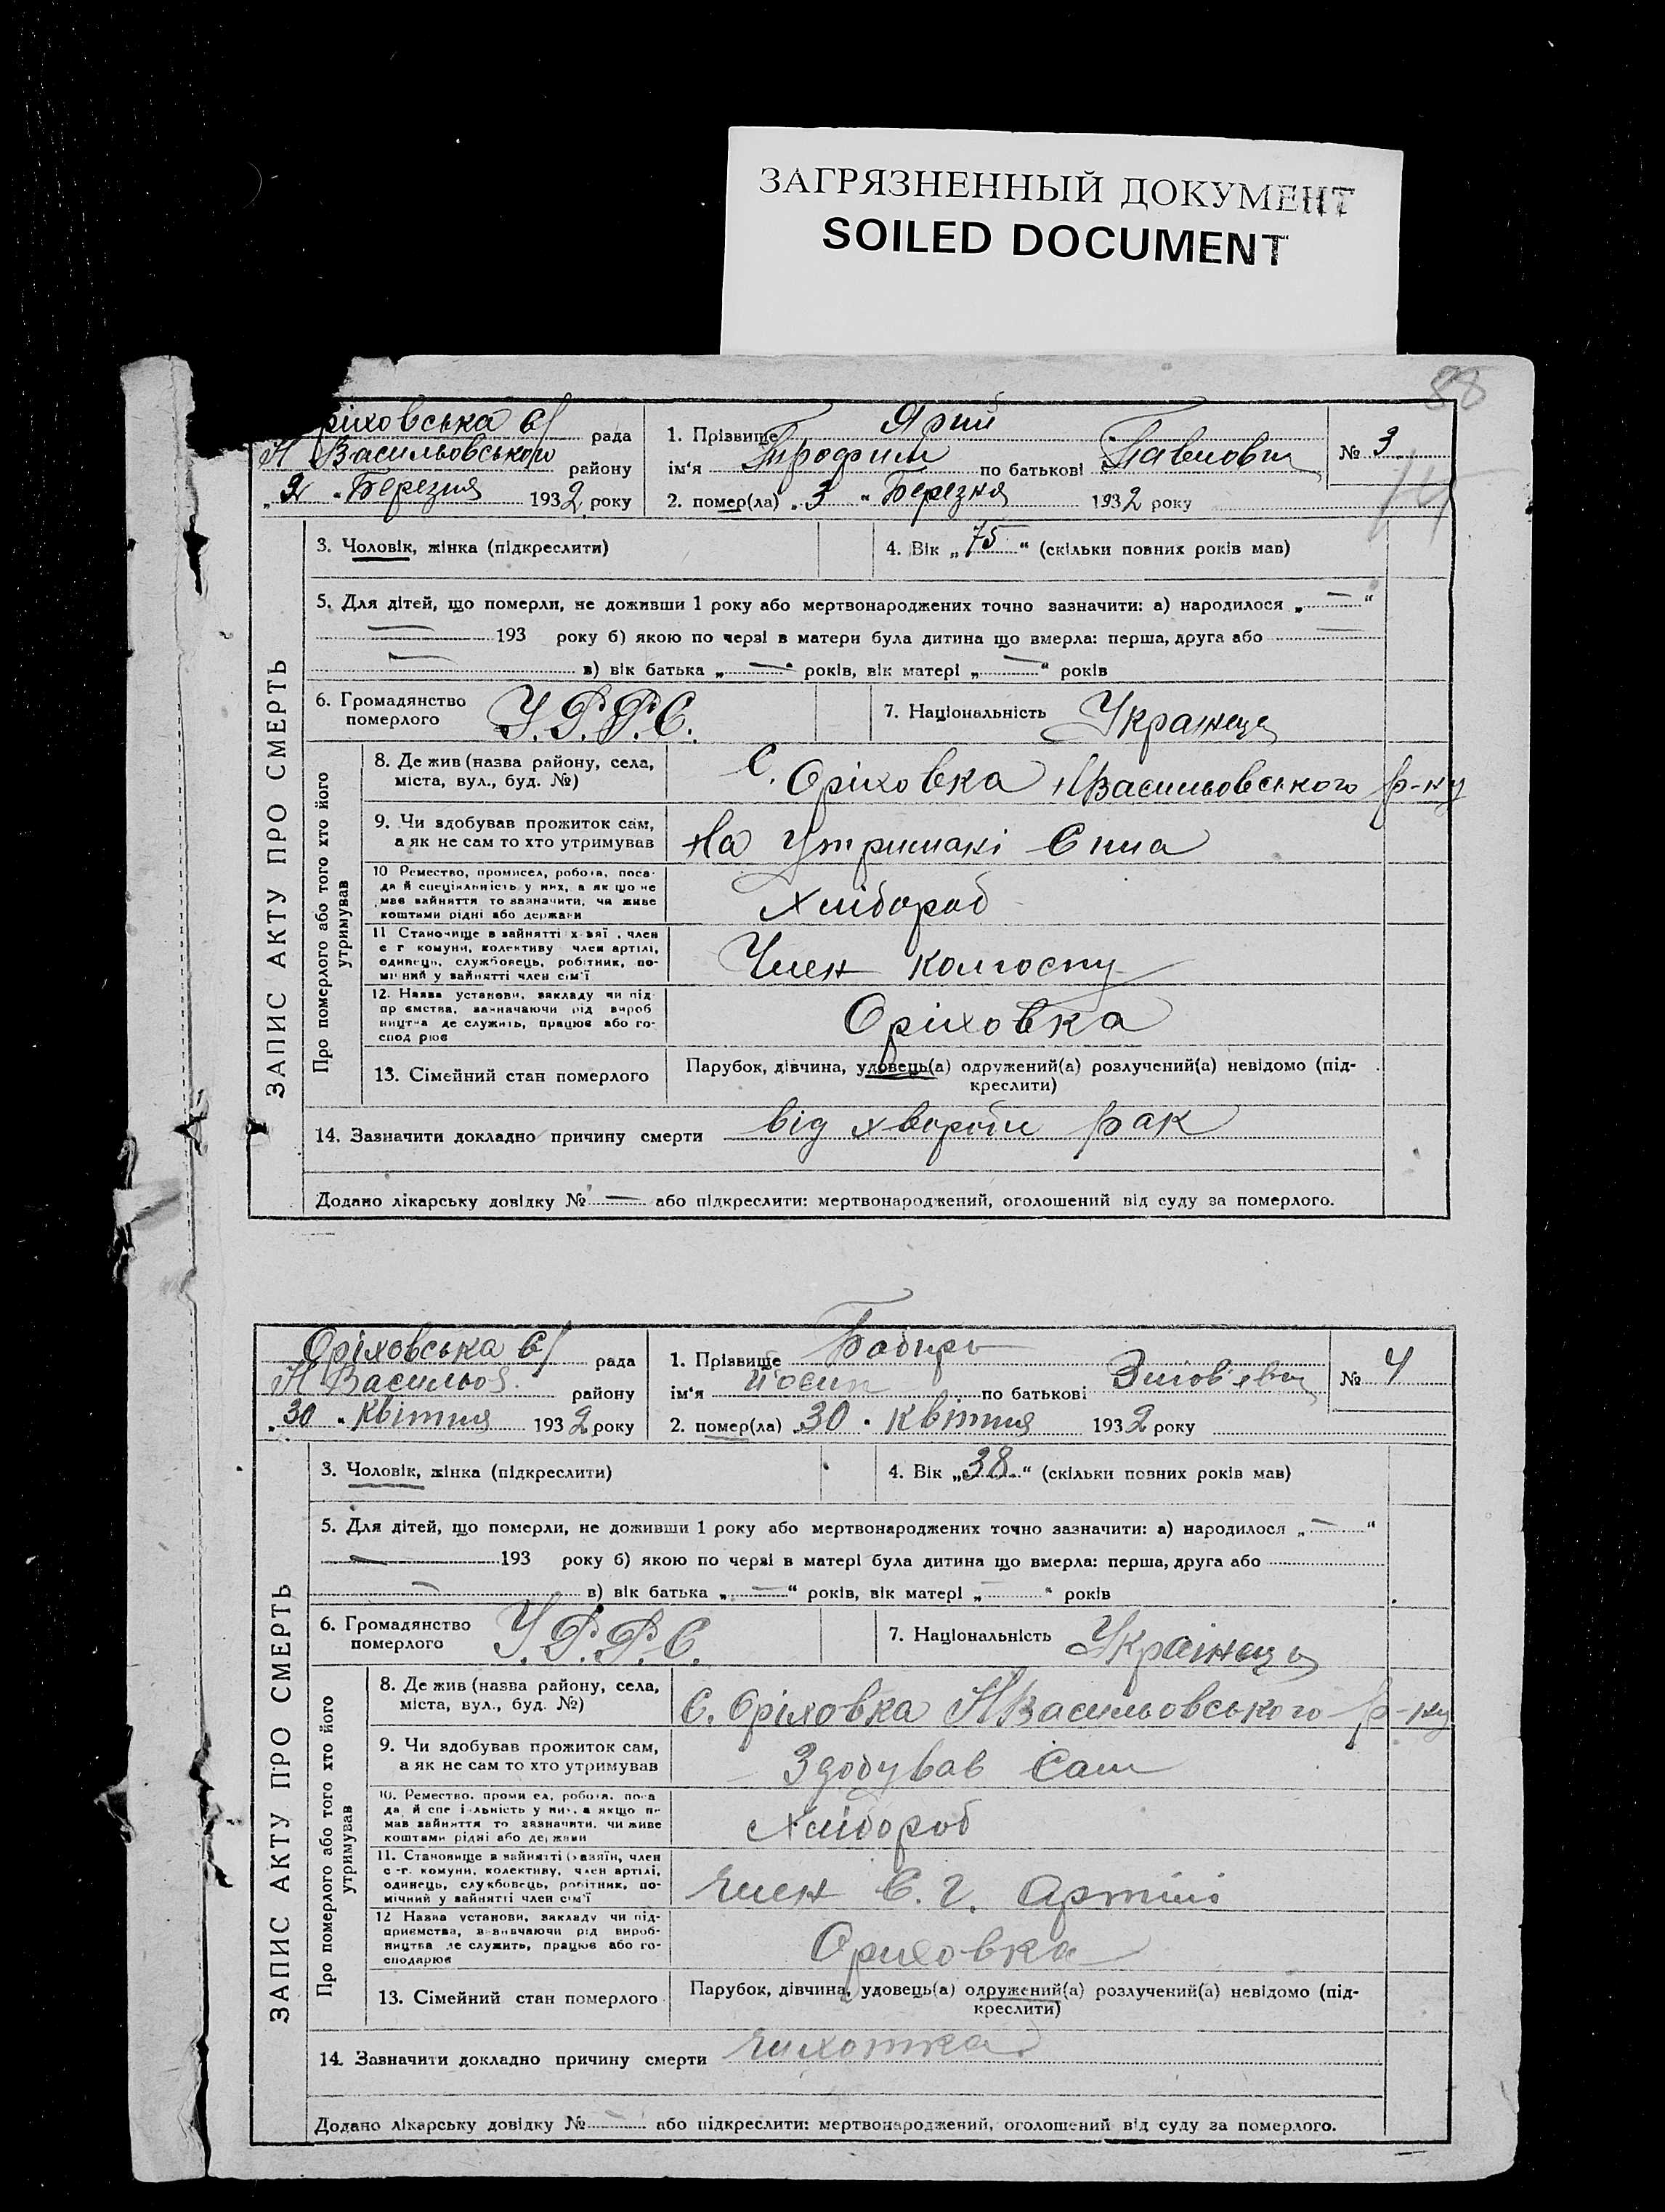 ЗАГРЯЗНЕННЫЙ ДОКУМЕНТ
SOILED DOCUMENT
88
ріховська с/ рада
Н Васильовського району
„ “ Березня 1932 року
1. Прізвище Ярий
ім‘я Трофим по батькові Павлович
2. помер(ла) „3“ Березня 1932 року
№ 3
ЗАПИС АКТУ ПРО СМЕРТЬ
3. Чоловік, жінка (підкреслити)
4. Вік „75“ (скільки повних років мав)
5. Для дітей, що померли, не доживши 1 року або мертвонароджених точно зазначити: а) народилося „—“
— 193 року б) якою по черзі в матери була дитина що вмерла: перша, друга або —
— в) вік батька „—“ років, вік матері „—“ років
6. Громадянство померлого У.Р.Р.С.
7. Національність Українець
Про померлого або того хто його утримував
8. Де жив (назва району, села,
міста, вул., буд. №)
С. Оріховка НВасильовського р-ну
9. Чи здобував прожиток сам,
а як не сам то хто утримував
На Утримані Сина
10 Ремество, промисел, робота, поса-
да й спеціяльність у них, а як що не
має зайняття то зазначити, чи живе
коштами рідні або держави
Хлібороб
11 Становище в зайнятті х зяї , член
с г комуни, колективу член артілі,
одинець, службовець, робітник, по-
мічний у зайнятті член сім‘ї
Член колгоспу
12. Назва установи, закладу чи під
пр ємства, зазначаючи рід вироб
ництва де служить, працює або го-
спод рює
Оріховка
13. Сімейний стан померлого
Парубок, дівчина, удовець(а) одружений(а) розлучений(а) невідомо (під-
креслити)
14. Зазначити докладно причину смерти від хвороби рак
Додано лікарську довідку № — або підкреслити: мертвонароджений, оголошений від суду за померлого.
Оріховська с/ рада
Н Васильов. району
„30“ Квітня 1932 року
1. Прізвище Бабирь
ім‘я Йосип по батькові Зинов'євич
2. помер(ла) „30“ Квітня 1932 року
№ 4
ЗАПИС АКТУ ПРО СМЕРТЬ
3. Чоловік, жінка (підкреслити)
4. Вік „38“ (скільки повних років мав)
5. Для дітей, що померли, не доживши 1 року або мертвонароджених точно зазначити: а) народилося „—“
— 193 року б) якою по черзі в матері була дитина що вмерла: перша, друга або
— в) вік батька „—“ років, вік матері „—“ років
6. Громадянство померлого У.Р.Р.С.
7. Національність Українець
Про померлого або того хто його утримував
8. Де жив (назва району, села,
міста, вул., буд. №)
С. Оріховка НВасильовського р-ну
9. Чи здобував прожиток сам,
а як не сам то хто утримував
Здобував Сам
10. Ремество, проми ел, робота, поса
да й спе і льність у них, а якщо не
мав зайняття то зазначити, чи живе
коштами рідні або держави
Хлібороб
11. Становище в зайнятті (хазяїн, член
с -г. комуни, колективу, член артілі,
одинець, службовець, робітник, по-
мічний у зайнятті член сім‘ї
Член С. г. Артілі
12 Назва установи, закладу чи під-
приємства, зазначаючи рід вироб-
ництва де служить, працює або го-
сподарює
Оріховка
13. Сімейний стан померлого
Парубок, дівчина, удовець(а) одружений(а) розлучений(а) невідомо (під-
креслити)
14. Зазначити докладно причину смерти Чихотка
Додано лікарську довідку № — або підкреслити: мертвонароджений, оголошений від суду за померлого.